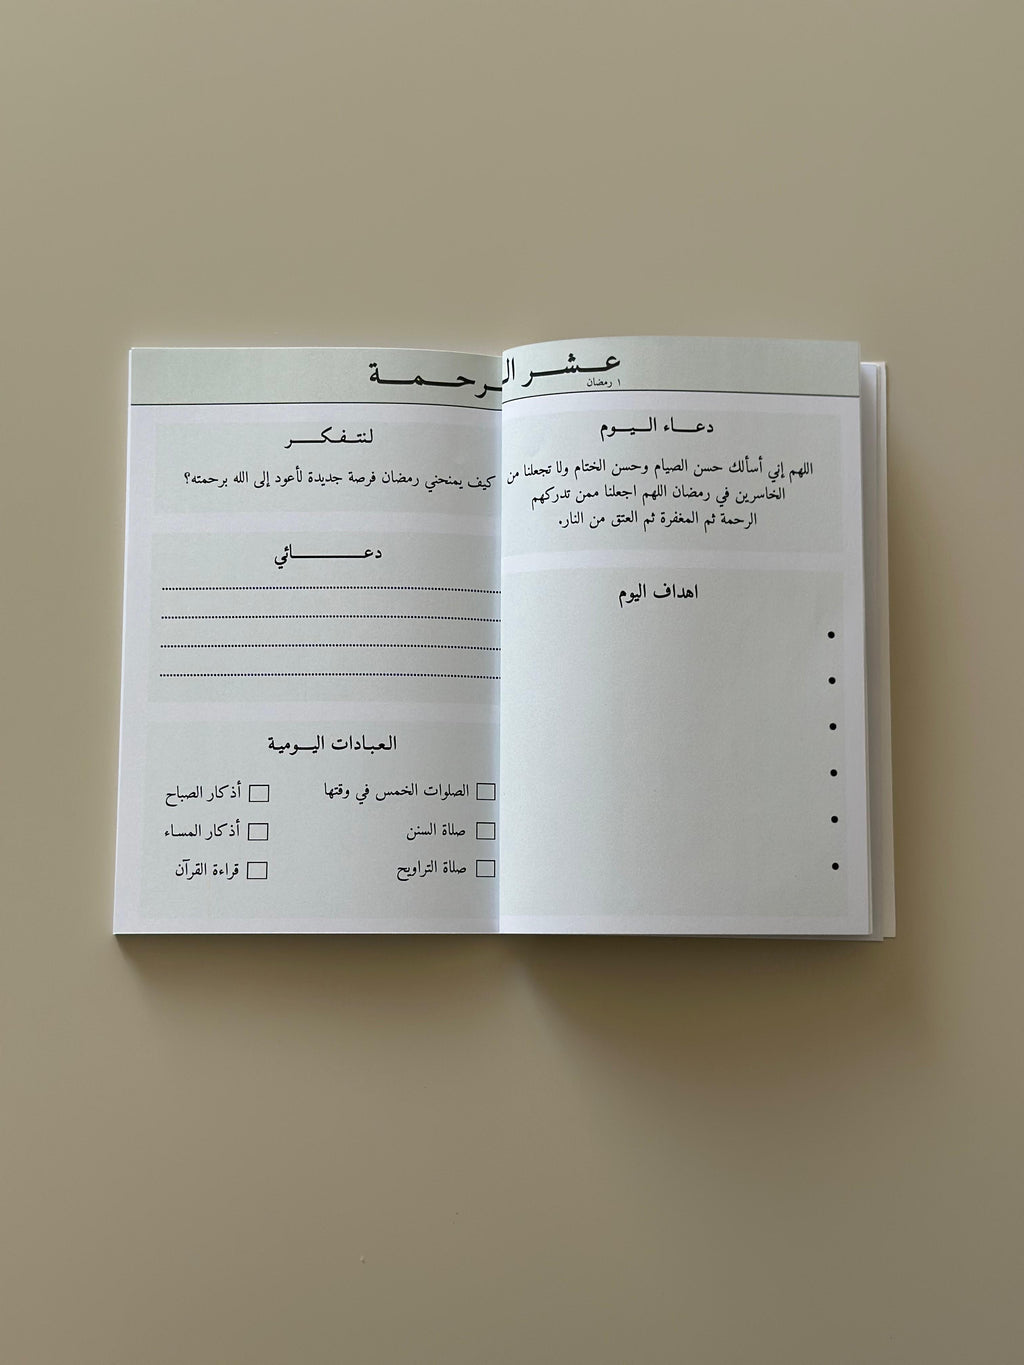 عشر الرحمة
١ رمضان
دعاء اليوم
اللهم إني أسألك حسن الصيام وحسن الختام ولا تجعلنا من
الخاسرين في رمضان اللهم اجعلنا ممن تدركهم
الرحمة ثم المغفرة ثم العتق من النار.
اهداف اليوم
لنتفكر
كيف يمنحني رمضان فرصة جديدة لأعود إلى الله برحمته؟
دعائي
العبادات اليومية
الصلوات الخمس في وقتها
أذكار الصباح
صلاة السنن
أذكار المساء
صلاة التراويح
قراءة القرآن